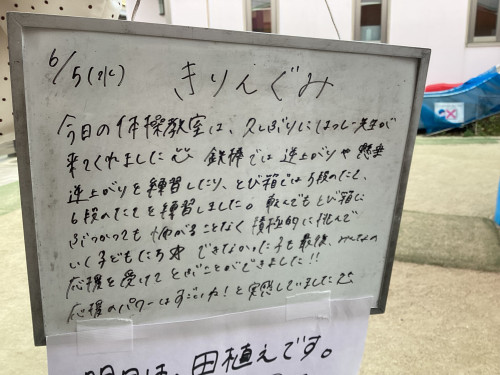 6/5(水) きりんぐみ
今日の体操教室は、久しぶりにはっしー先生が
来てくれました 鉄棒では逆上がりや懸垂
逆上がりを練習したり、とび箱では5段のたて、
6段のたてを練習しました。転んでもとび箱に
ぶつかっても怖がることなく積極的に挑んで
いく子どもたち できなかった子も最後、みんなの
応援を受けてとぶことができました!!
応援のパワーはすごいね!と実感していました
明日は、田植えです。